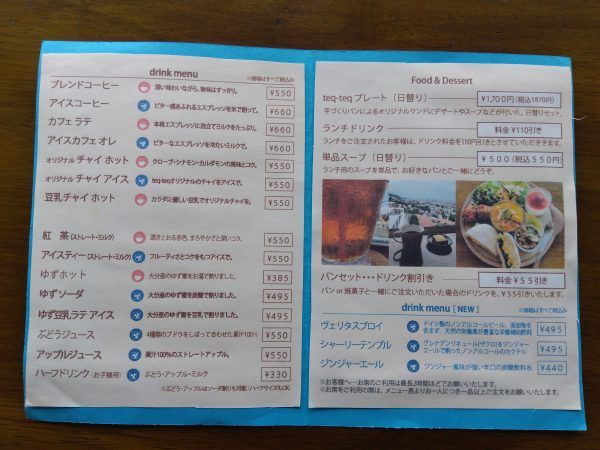 drink menu
※価格はすべて税込み
ブレンドコーヒー 深い味わいながら、後味はすっきり。 ¥550
アイスコーヒー ビター感あふれるエスプレッソを氷で割って。 ¥660
カフェ ラテ 本格エスプレッソに泡立てミルクをたっぷり。 ¥660
アイスカフェ オレ ビターなエスプレッソを冷たいミルクで。 ¥660
オリジナル チャイ ホット クローブ・シナモン・カルダモンの風味とコク。 ¥550
オリジナル チャイ アイス teq-teqオリジナルのチャイをアイスで。 ¥550
豆乳チャイ ホット カラダに優しい豆乳でオリジナルチャイを。 ¥550
紅 茶(ストレート・ミルク) 透きとおる赤色、まろやかさと深いコク。 ¥550
アイスティー(ストレート・ミルク) フルーティさとコクをもつアイスで。 ¥550
ゆずホット 大分産のゆず蜜をお湯で割りました。 ¥385
ゆずソーダ 大分産のゆず蜜を炭酸で割りました。 ¥495
ゆず豆乳ラテ アイス 大分産のゆず蜜を豆乳で割りました。 ¥550
ぶどうジュース 4種類のブドウをしぼって合わせた果汁100% ¥550
アップルジュース 果汁100%のストレートアップル。 ¥550
ハーフドリンク(お子様用) ぶどう・アップル・ミルク ¥330
※ぶどう・アップルはソーダ割りも可能(ハーフサイズもOK)
Food & Dessert
teq-teq プレート(日替り) ¥1,700円(税込1870円)
手づくりパンによるオリジナルサンドにデザートやスープなどが付いた、日替りセット。
ランチドリンク 料金 ¥110引き
ランチをご注文されたお客様は、ドリンク料金を110円引きとさせていただきます。
単品スープ(日替り) ¥500(税込550円)
ランチ用のスープを単品で、お好きなパンと一緒にどうぞ。
パンセット・・・ドリンク割引き 料金 ¥55引き
パン or 焼菓子と一緒にご注文いただいた場合のドリンクを、¥55引きいたします。
drink menu [ NEW ]
※価格はすべて税込み
ヴェリタスブロイ ドイツ製のノンアルコールビール、添加物を含まず、天然の栄養素が豊富な栄養補助飲料 ¥495
シャーリーテンプル グレナデンリキュール(ザクロ)をジンジャーエールで割ったノンアルコールのカクテル ¥495
ジンジャーエール ジンジャー風味が強い辛口の炭酸飲料水 ¥440
※お客様へ…お席のご利用は最長2時間ほどでお願いいたします。
※お席をご利用の際は、メニュー表よりお一人につき一品以上ご注文をお願いいたします。